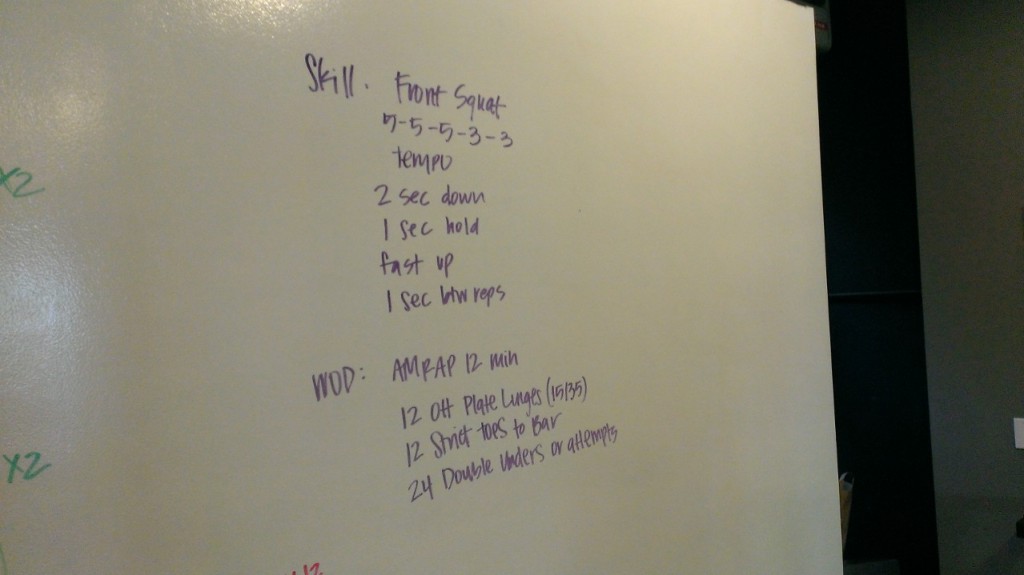 X2
Skill. Front Squat
5-5-5-3-3
tempo
2 sec down
1 sec hold
fast up
1 sec btw reps
WOD: AMRAP 12 min
12 OH Plate Lunges (15/35)
12 Strict toes to Bar
24 Double Unders or attempts
X2